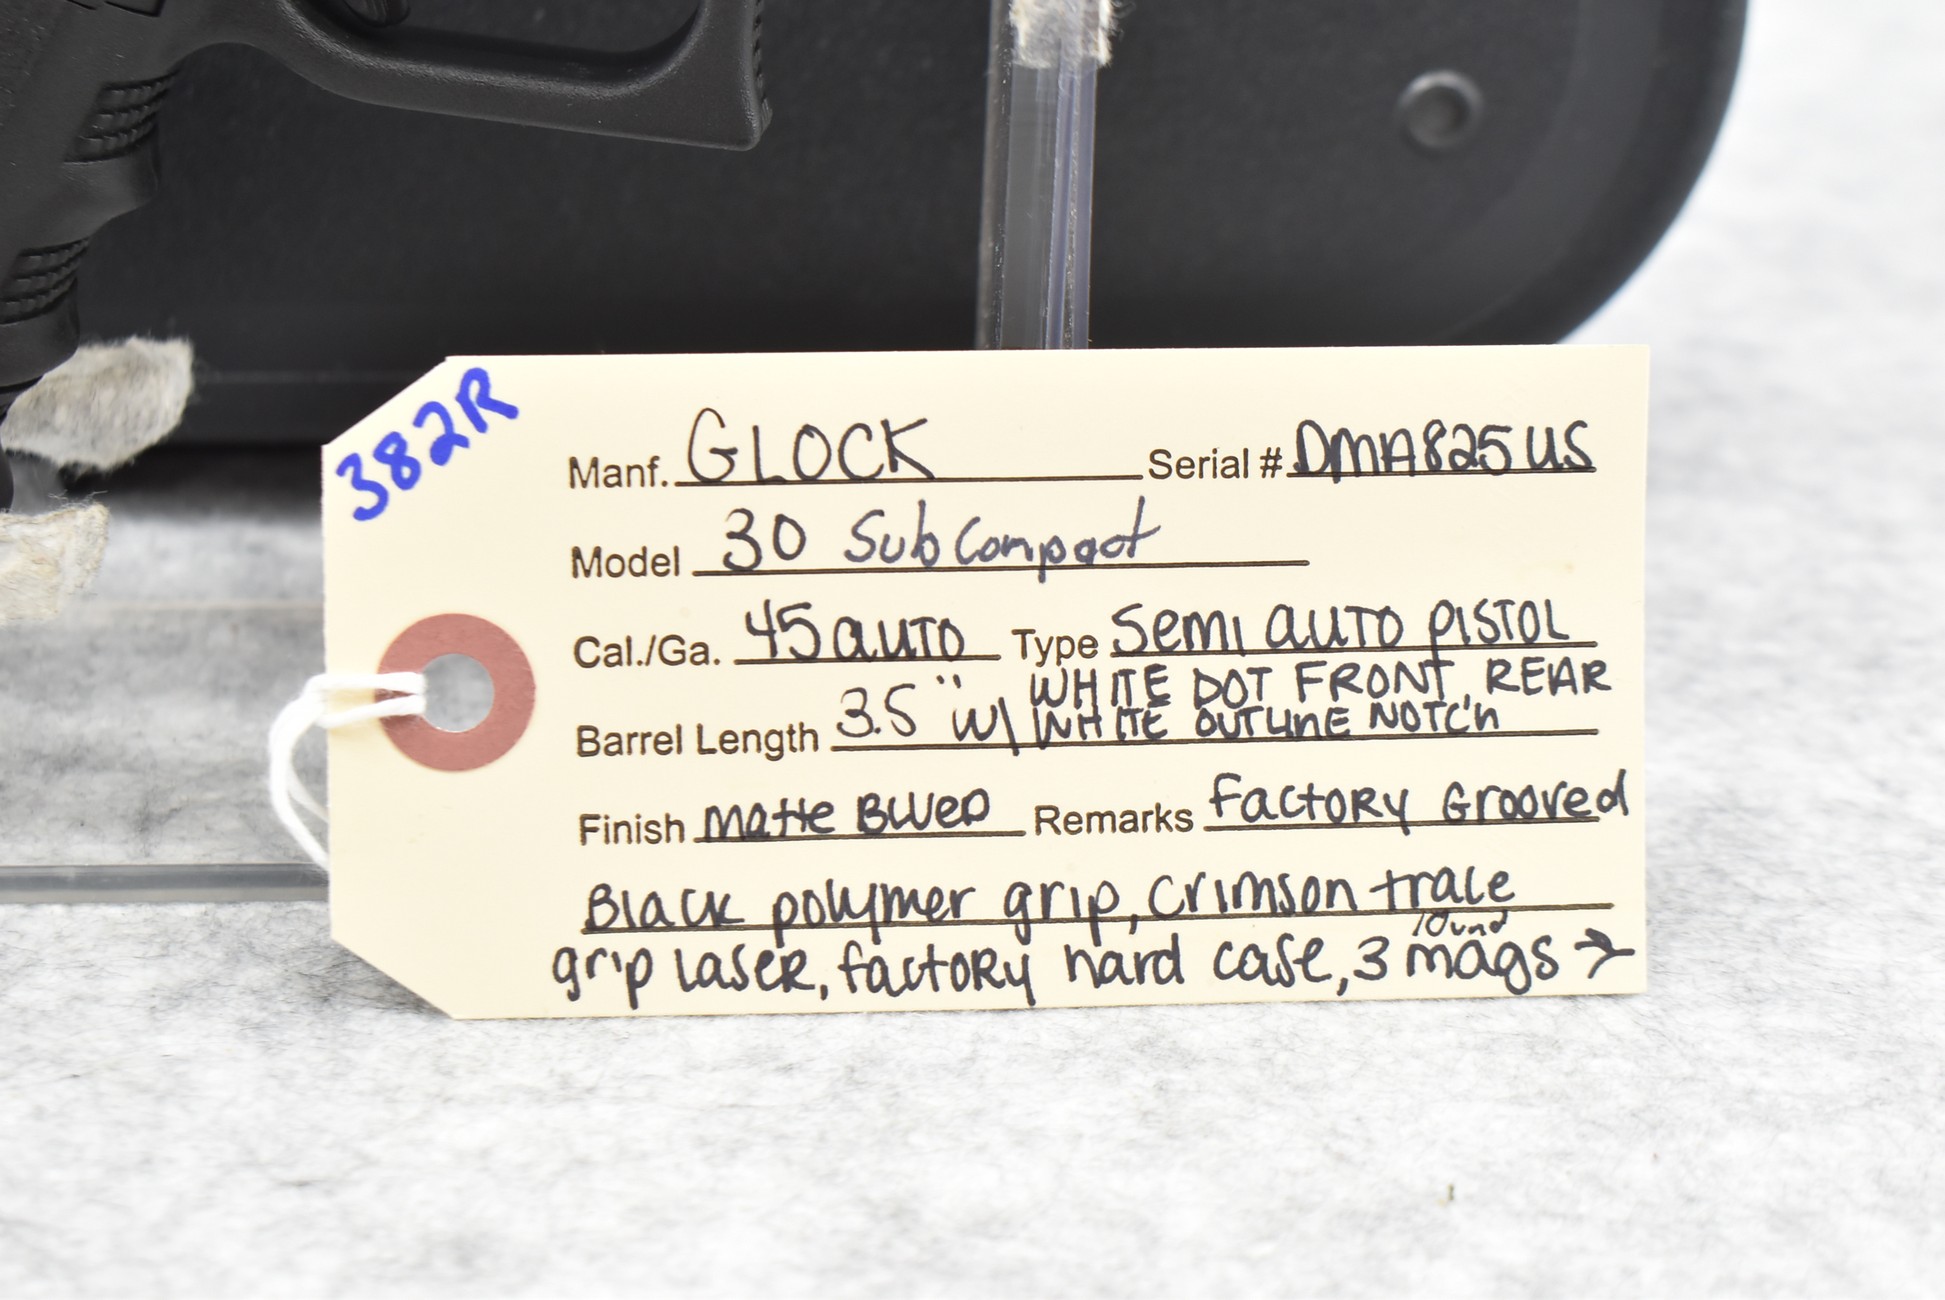 382R
Manf. GLOCK Serial # DMA825US
Model 30 Subcompact
Cal./Ga. 45 auto Type Semi auto PISTOL
WHITE DOT FRONT, REAR
Barrel Length 3.5" w/ WHITE OUTLINE NOTCh
Finish Matte BLUED Remarks Factory Grooved
Black polymer grip, Crimson trace
grip laser, factory hard case, 3 mags →